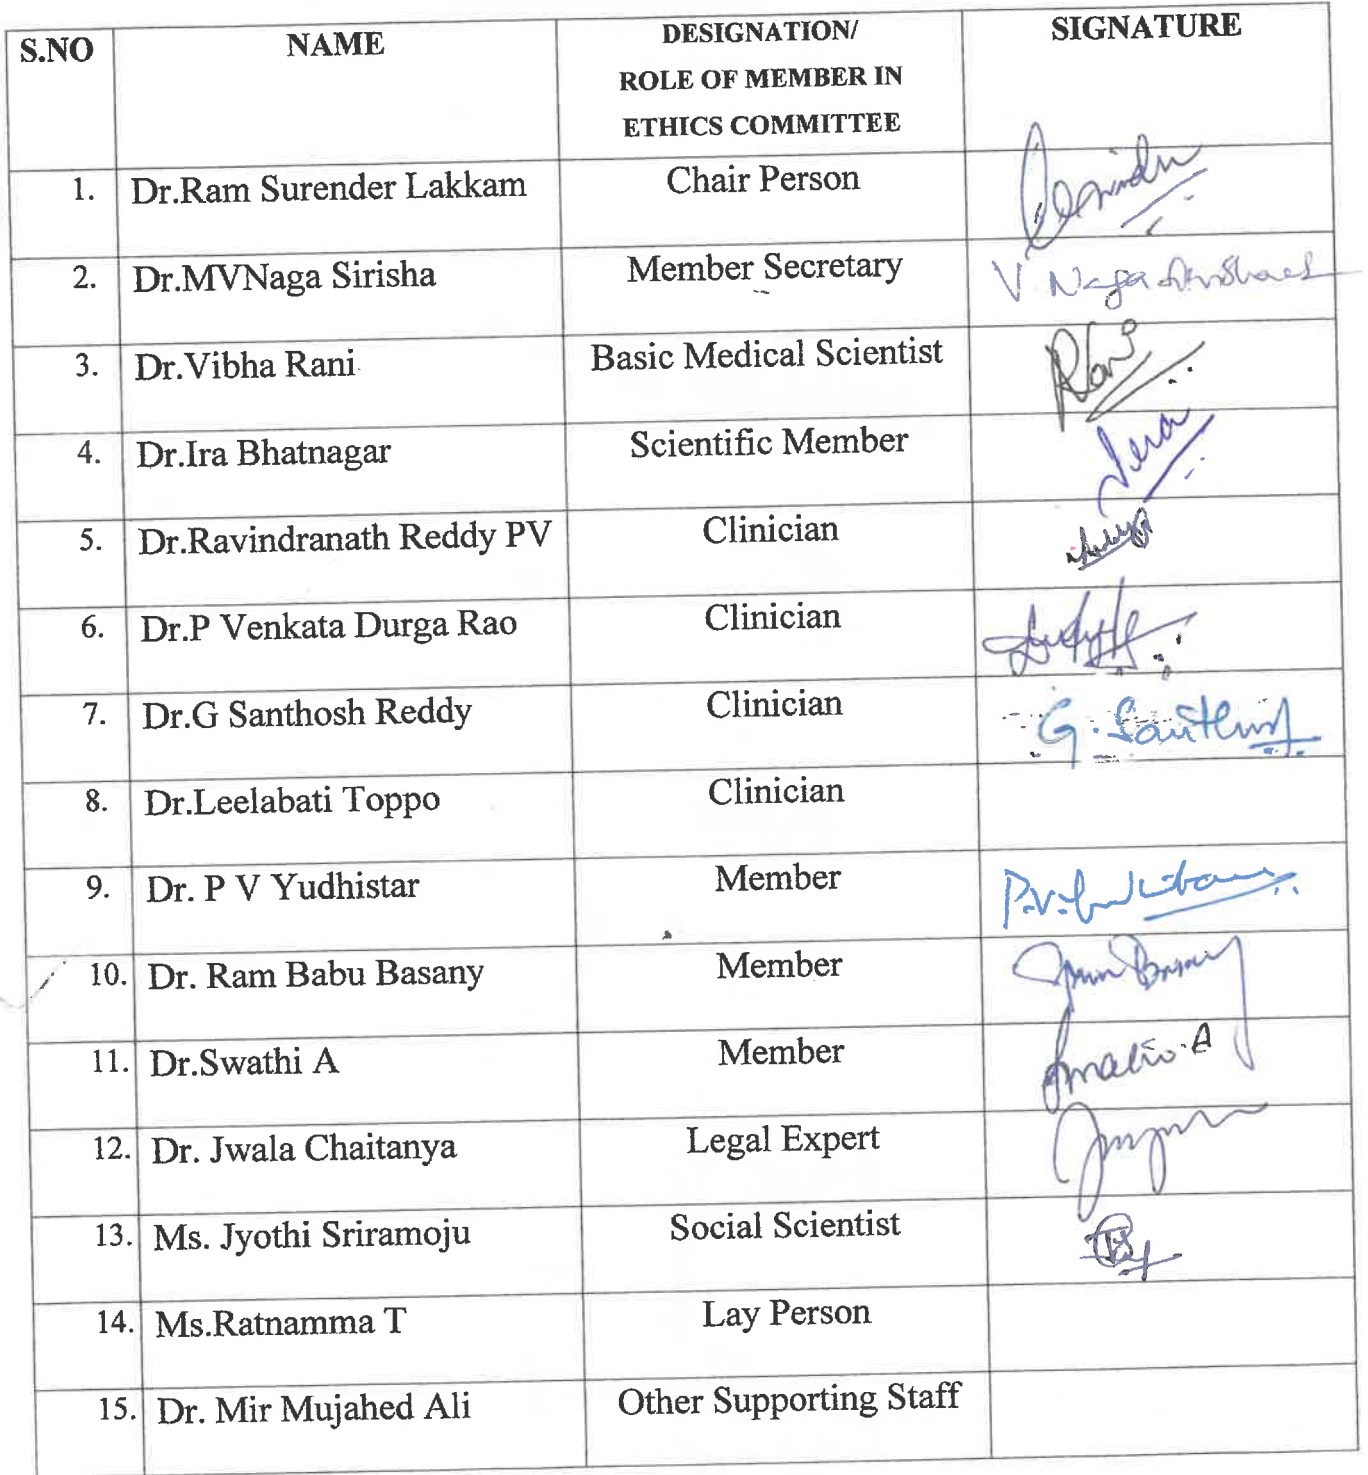 S.NO NAME DESIGNATION/ SIGNATURE
ROLE OF MEMBER IN
ETHICS COMMITTEE
1. Dr.Ram Surender Lakkam Chair Person
2. Dr.MVNaga Sirisha Member Secretary V. Naga
3. Dr.Vibha Rani Basic Medical Scientist Rani
4. Dr.Ira Bhatnagar Scientific Member
5. Dr.Ravindranath Reddy PV Clinician
6. Dr.P Venkata Durga Rao Clinician
7. Dr.G Santhosh Reddy Clinician G.
8. Dr.Leelabati Toppo Clinician
9. Dr. P V Yudhistar Member P.V.
10. Dr. Ram Babu Basany Member Basany
11. Dr.Swathi A Member A
12. Dr. Jwala Chaitanya Legal Expert
13. Ms. Jyothi Sriramoju Social Scientist
14. Ms.Ratnamma T Lay Person
15. Dr. Mir Mujahed Ali Other Supporting Staff